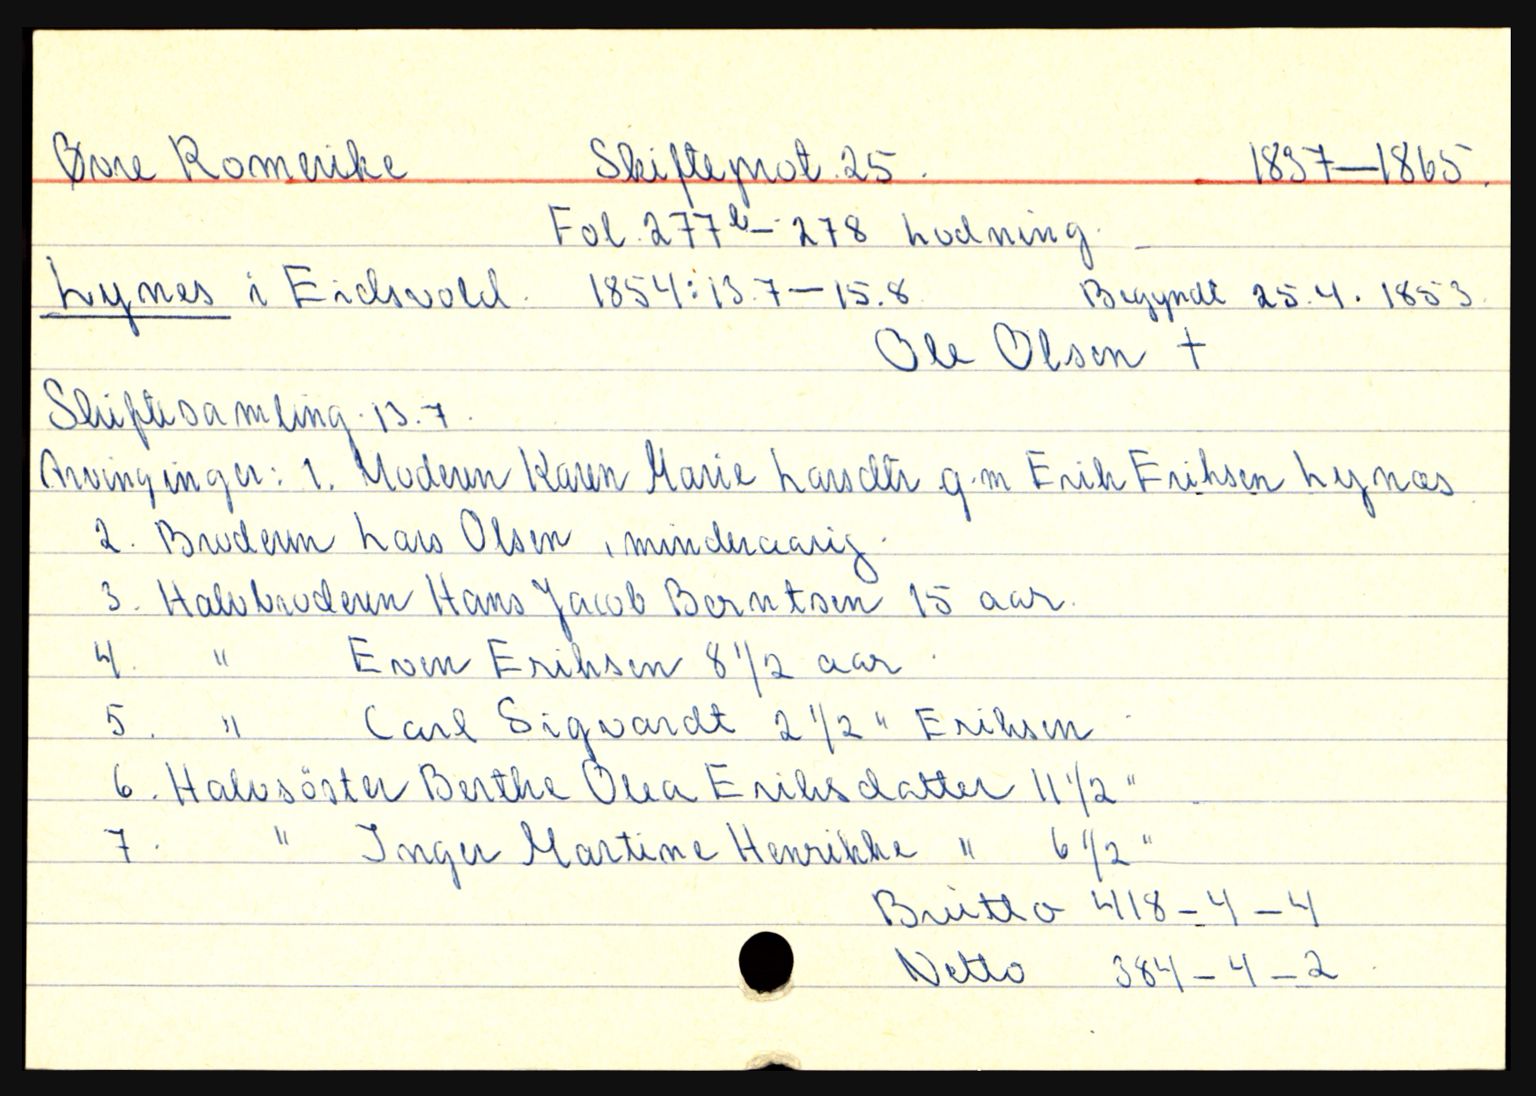 Øvre Romerike Skifteprot. 25. 1837-1865.
Fol. 277b - 278 Lodning.
Lynes i Eidsvold. 1854: 13.7 - 15.8 Begyndt 25.4. 1853.
Ole Olsen †
Skiftesamling. 13.7.
Arvinginger: 1. Moderen Karen Marie Larsdtr g.m Erik Eriksen Lynæs
2. Broderen Lars Olsen, minderaarig.
3. Halvbroderen Hans Jacob Berntsen 15 aar.
4. " Even Eriksen 8 1/2 aar.
5. " Carl Sigvardt 2 1/2 " Eriksen
6. Halvsöster Berthe Olea Eriksdatter 11 1/2 "
7. " Inger Martine Henrikke " 6 1/2 "
Brutto 418-4-4
Netto 384-4-2